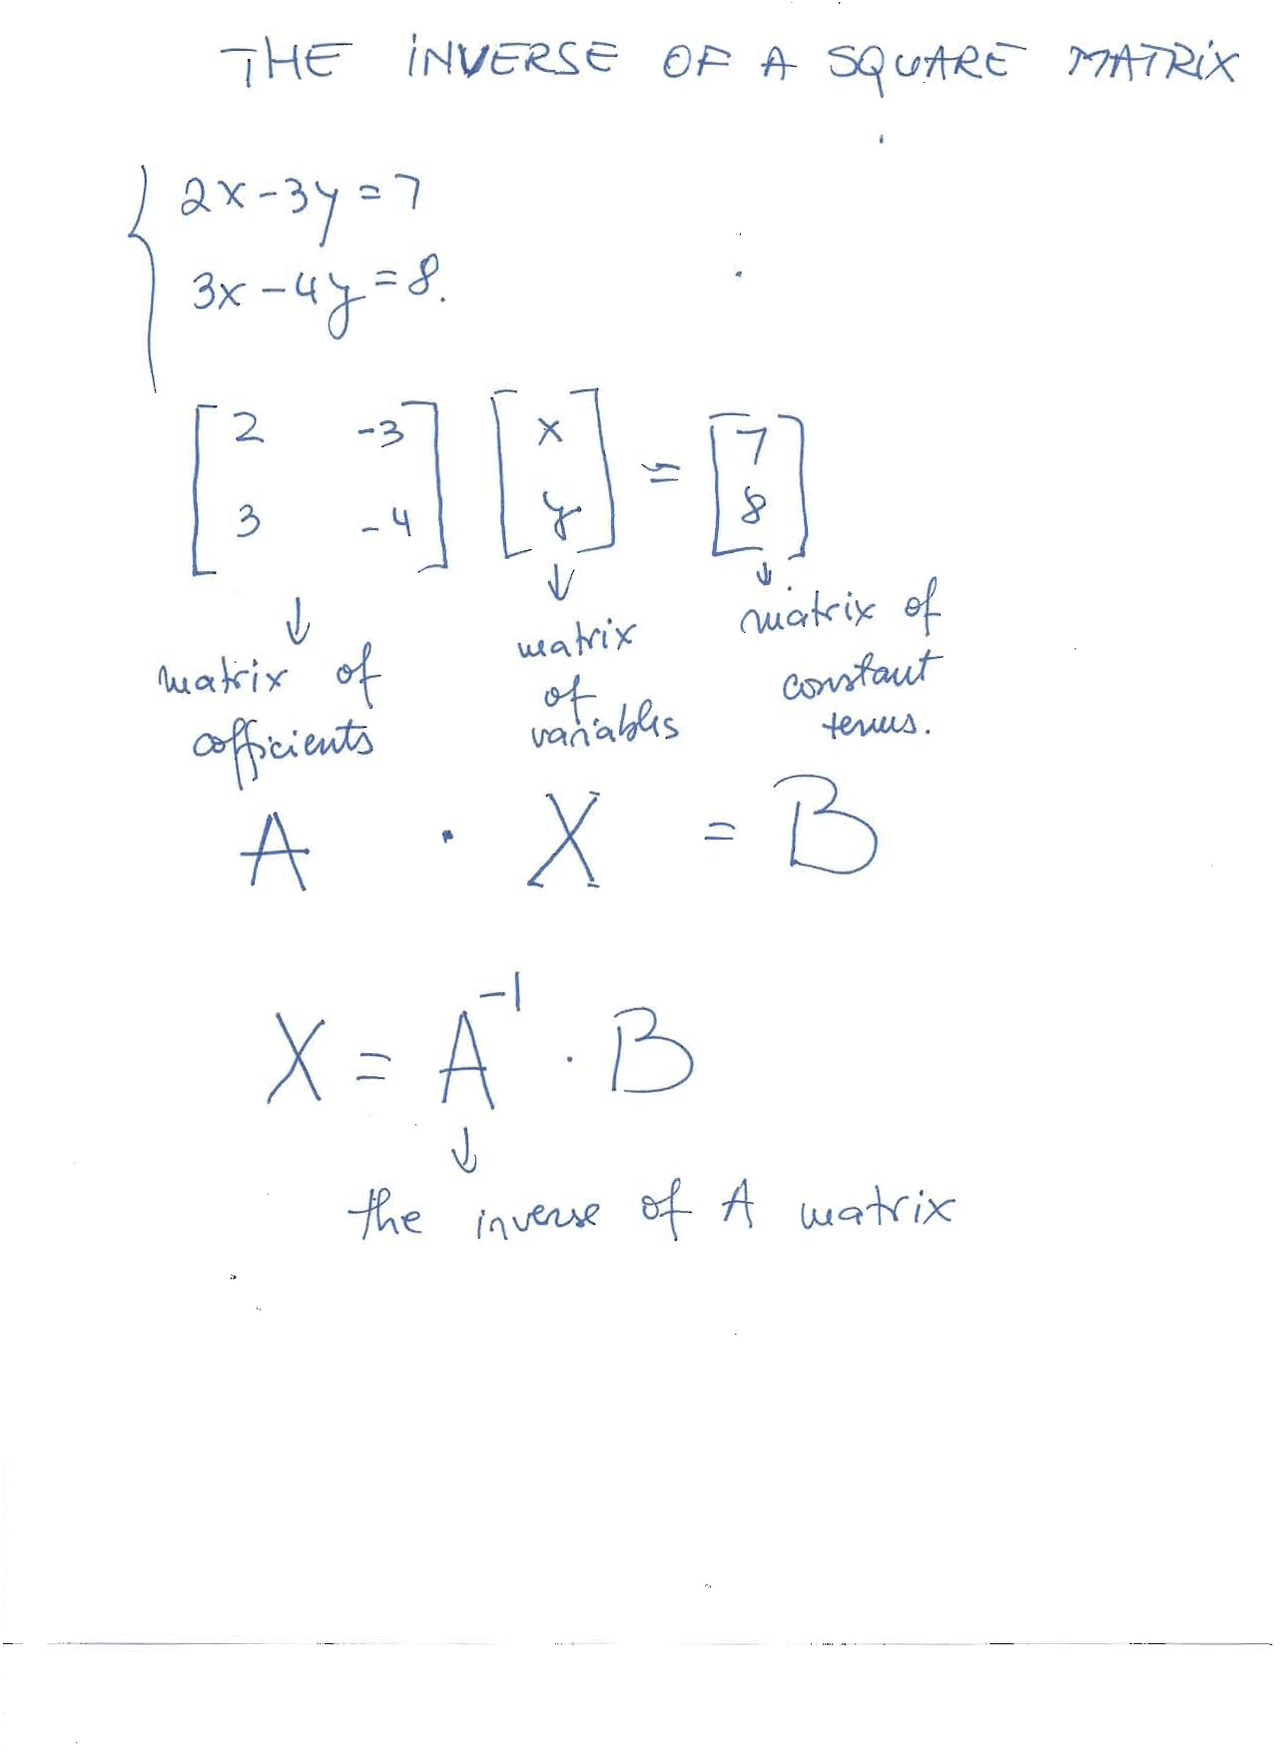 THE INVERSE OF A SQUARE MATRIX
2x-3y=7
3x-4y=8.
[2 -3] [x] = [7]
[3 -4] [y] [8]
↓ ↓ ↓
matrix of cofficients
matrix of variables
matrix of constant terms.
A · X = B
X = A⁻¹ · B
↓
the inverse of A matrix